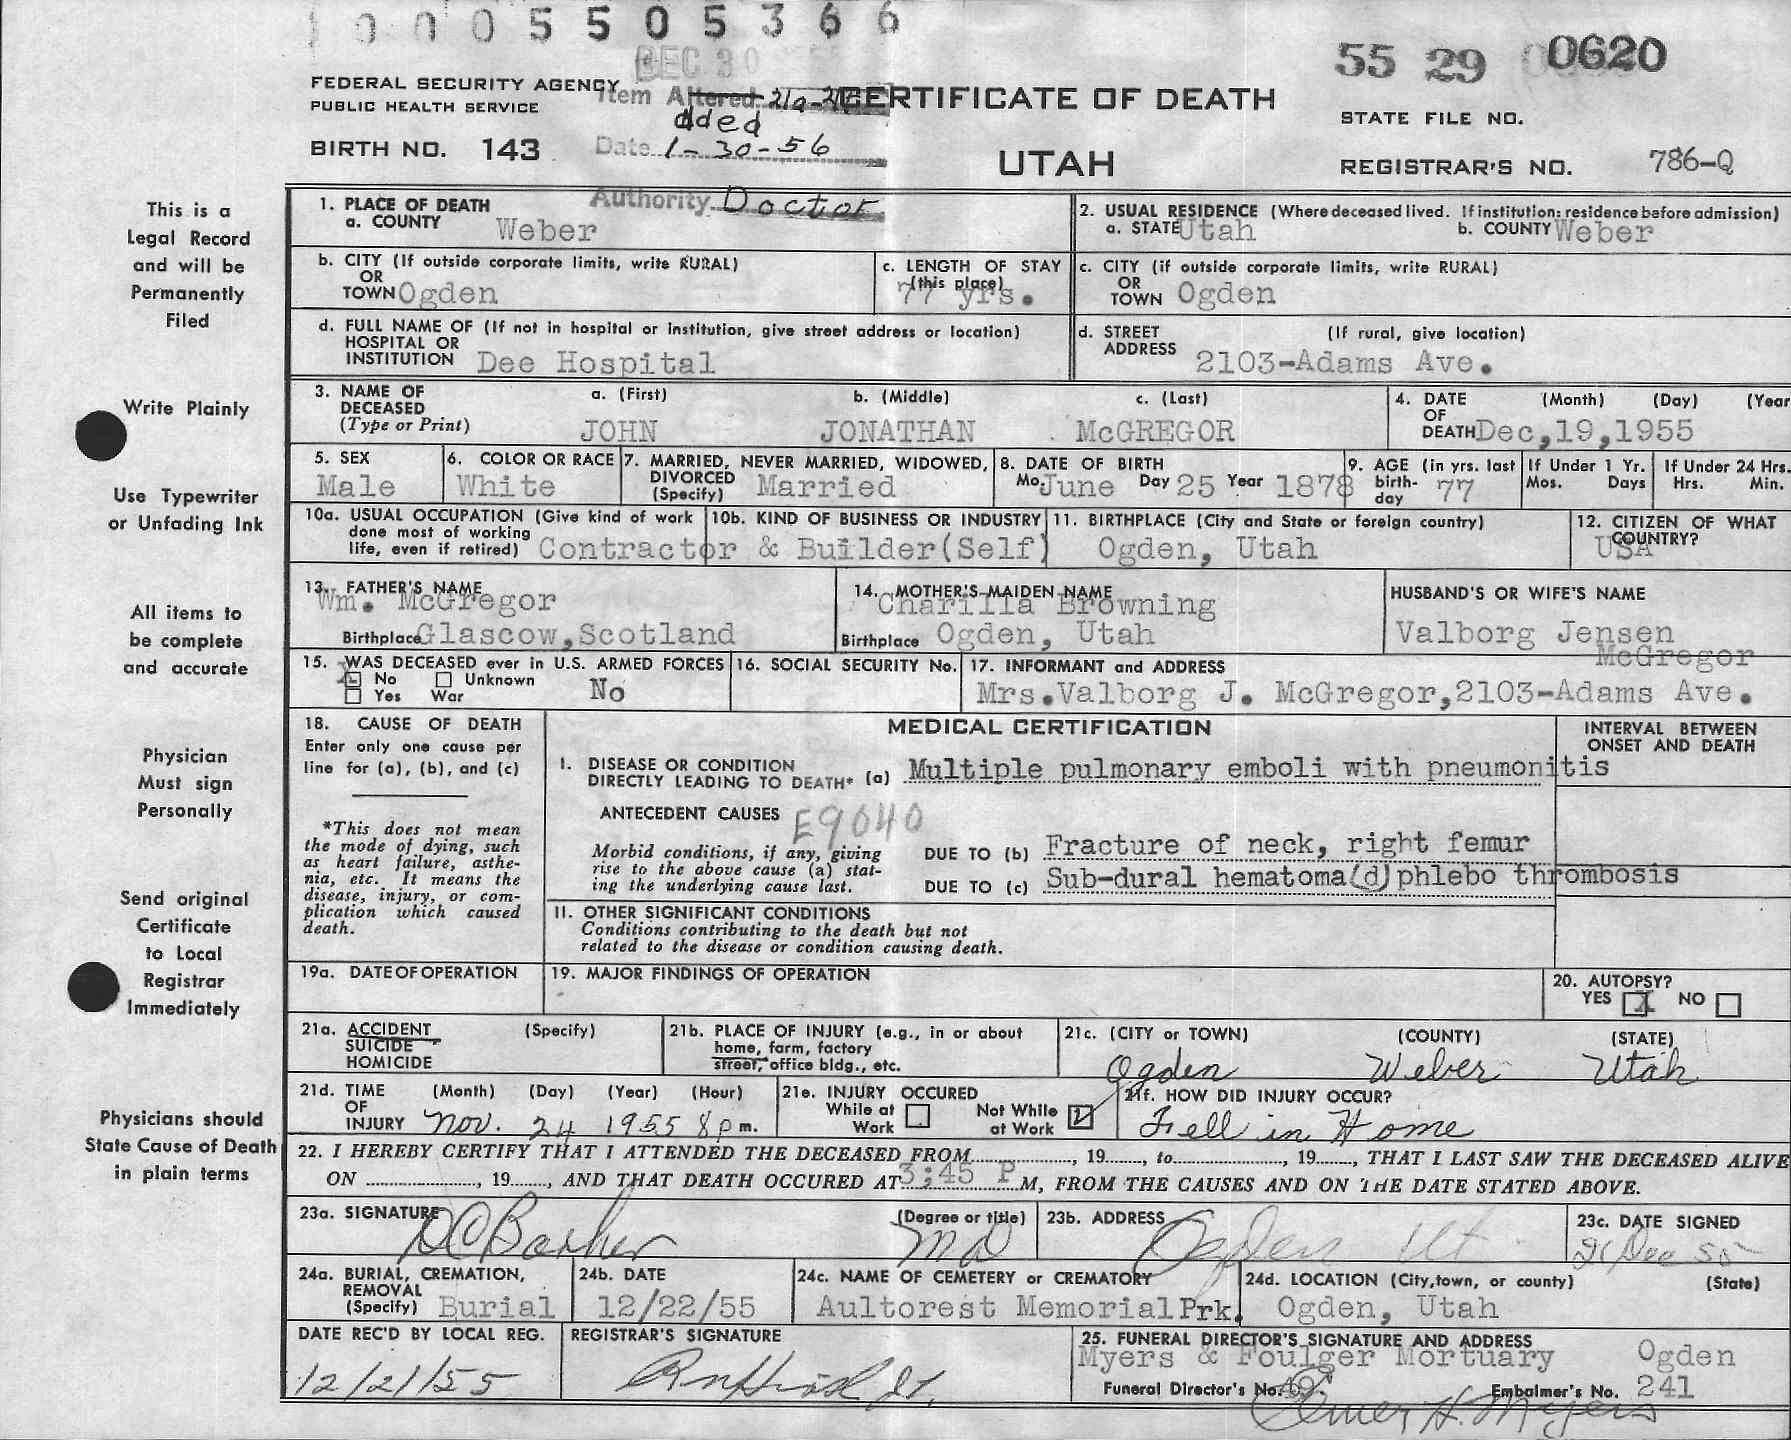 1 0 0 0 5 5 0 5 3 6 6
DEC 30
55 29 0620
FEDERAL SECURITY AGENCY
PUBLIC HEALTH SERVICE
Item Altered 21a-21f
dded
CERTIFICATE OF DEATH
STATE FILE NO.
BIRTH NO. 143
Date 1-30-56
UTAH
REGISTRAR'S NO. 786-Q
Authority Doctor
This is a
Legal Record
and will be
Permanently
Filed
Write Plainly
Use Typewriter
or Unfading Ink
All items to
be complete
and accurate
Physician
Must sign
Personally
Send original
Certificate
to Local
Registrar
Immediately
Physicians should
State Cause of Death
in plain terms
1. PLACE OF DEATH
a. COUNTY Weber
2. USUAL RESIDENCE (Where deceased lived. If institution: residence before admission)
a. STATE Utah b. COUNTY Weber
b. CITY (If outside corporate limits, write RURAL)
OR
TOWN Ogden
c. LENGTH OF STAY
(this place)
77 yrs.
c. CITY (if outside corporate limits, write RURAL)
OR
TOWN Ogden
d. FULL NAME OF (If not in hospital or institution, give street address or location)
HOSPITAL OR
INSTITUTION Dee Hospital
d. STREET (If rural, give location)
ADDRESS 2103-Adams Ave.
3. NAME OF a. (First) b. (Middle) c. (Last)
DECEASED
(Type or Print) JOHN JONATHAN McGREGOR
4. DATE (Month) (Day) (Year
OF
DEATH Dec,19,1955
5. SEX
Male
6. COLOR OR RACE
White
7. MARRIED, NEVER MARRIED, WIDOWED,
DIVORCED
(Specify) Married
8. DATE OF BIRTH
Mo. June Day 25 Year 1878
9. AGE (in yrs. last
birth-
day 77
If Under 1 Yr.
Mos. Days
If Under 24 Hrs.
Hrs. Min.
10a. USUAL OCCUPATION (Give kind of work
done most of working
life, even if retired)
10b. KIND OF BUSINESS OR INDUSTRY
Contractor & Builder(Self)
11. BIRTHPLACE (City and State or foreign country)
Ogden, Utah
12. CITIZEN OF WHAT
COUNTRY?
USA
13. FATHER'S NAME
Wm. McGregor
Birthplace Glascow,Scotland
14. MOTHER'S MAIDEN NAME
Charilla Browning
Birthplace Ogden, Utah
HUSBAND'S OR WIFE'S NAME
Valborg Jensen
McGregor
15. WAS DECEASED ever in U.S. ARMED FORCES
No Unknown
Yes War No
16. SOCIAL SECURITY No.
17. INFORMANT and ADDRESS
Mrs.Valborg J. McGregor,2103-Adams Ave.
18. CAUSE OF DEATH
Enter only one cause per
line for (a), (b), and (c)
*This does not mean
the mode of dying, such
as heart failure, asthe-
nia, etc. It means the
disease, injury, or com-
plication which caused
death.
MEDICAL CERTIFICATION
INTERVAL BETWEEN
ONSET AND DEATH
I. DISEASE OR CONDITION
DIRECTLY LEADING TO DEATH* (a) Multiple pulmonary emboli with pneumonitis
ANTECEDENT CAUSES E9040
Morbid conditions, if any, giving
rise to the above cause (a) stat-
ing the underlying cause last.
DUE TO (b) Fracture of neck, right femur
DUE TO (c) Sub-dural hematoma(d)phlebo thrombosis
II. OTHER SIGNIFICANT CONDITIONS
Conditions contributing to the death but not
related to the disease or condition causing death.
19a. DATE OF OPERATION
19. MAJOR FINDINGS OF OPERATION
20. AUTOPSY?
YES X NO
21a. ACCIDENT (Specify)
SUICIDE
HOMICIDE
21b. PLACE OF INJURY (e.g., in or about
home, farm, factory
street, office bldg., etc.
21c. (CITY or TOWN) (COUNTY) (STATE)
Ogden Weber Utah
21d. TIME (Month) (Day) (Year) (Hour)
OF
INJURY Nov. 24 1955 8 p m.
21e. INJURY OCCURED
While at Not While
Work at Work
21f. HOW DID INJURY OCCUR?
Fell in Home
22. I HEREBY CERTIFY THAT I ATTENDED THE DECEASED FROM, 19, to, 19, THAT I LAST SAW THE DECEASED ALIVE
ON, 19, AND THAT DEATH OCCURED AT 3;45 P M, FROM THE CAUSES AND ON THE DATE STATED ABOVE.
23a. SIGNATURE (Degree or title)
DC Barker MD
23b. ADDRESS
Ogden Ut.
23c. DATE SIGNED
21 Dec 55
24a. BURIAL, CREMATION,
REMOVAL
(Specify) Burial
24b. DATE
12/22/55
24c. NAME OF CEMETERY or CREMATORY
Aultorest Memorial Prk.
24d. LOCATION (City,town, or county) (State)
Ogden, Utah
DATE REC'D BY LOCAL REG.
12/21/55
REGISTRAR'S SIGNATURE
25. FUNERAL DIRECTOR'S SIGNATURE AND ADDRESS
Myers & Foulger Mortuary Ogden
Funeral Director's No. Embalmer's No. 241
Elmer H. Myers